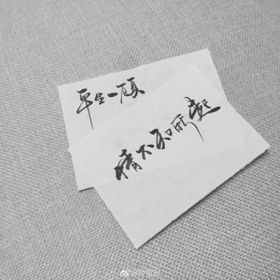 平生一顾
情不知所起